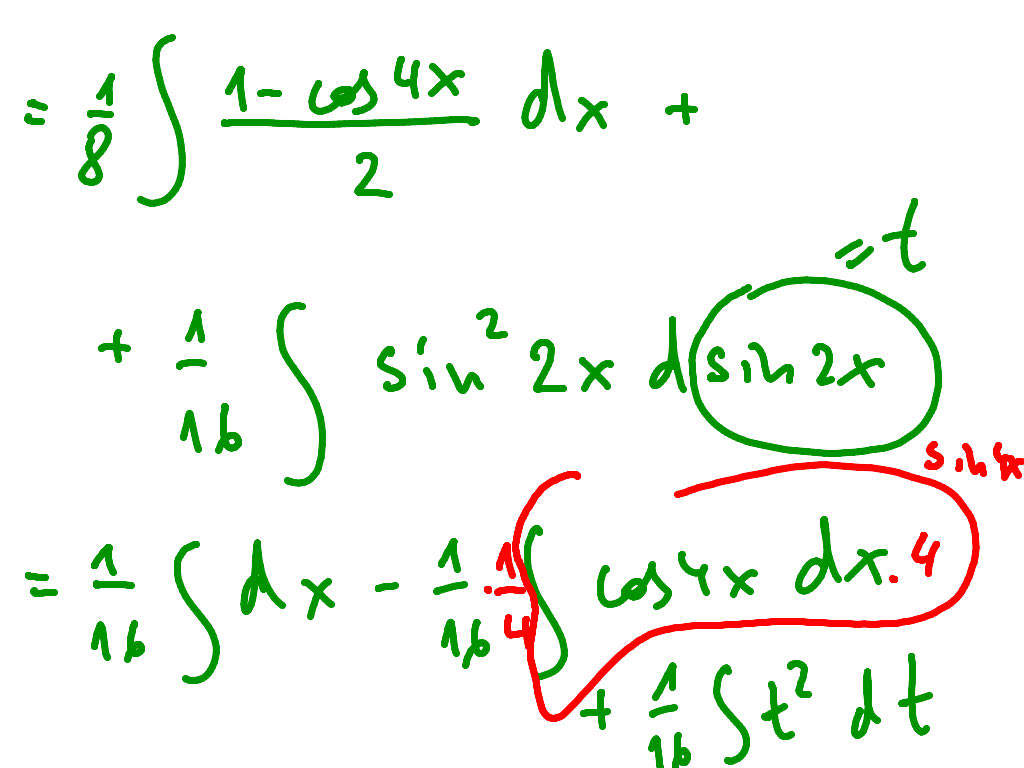 = 1/8 ∫ (1 - cos 4x)/2 dx +
= t
+ 1/16 ∫ sin² 2x d sin 2x
sin 4x
= 1/16 ∫ dx - 1/16 · 1/4 ∫ cos 4x dx · 4
+ 1/16 ∫ t² dt